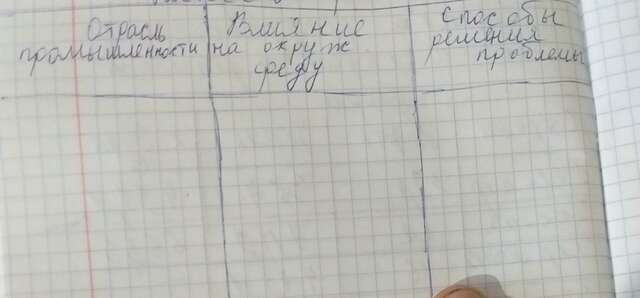 Отрасль
промышленности
Влияние
на окруж
среду
Способы
решения
проблемы